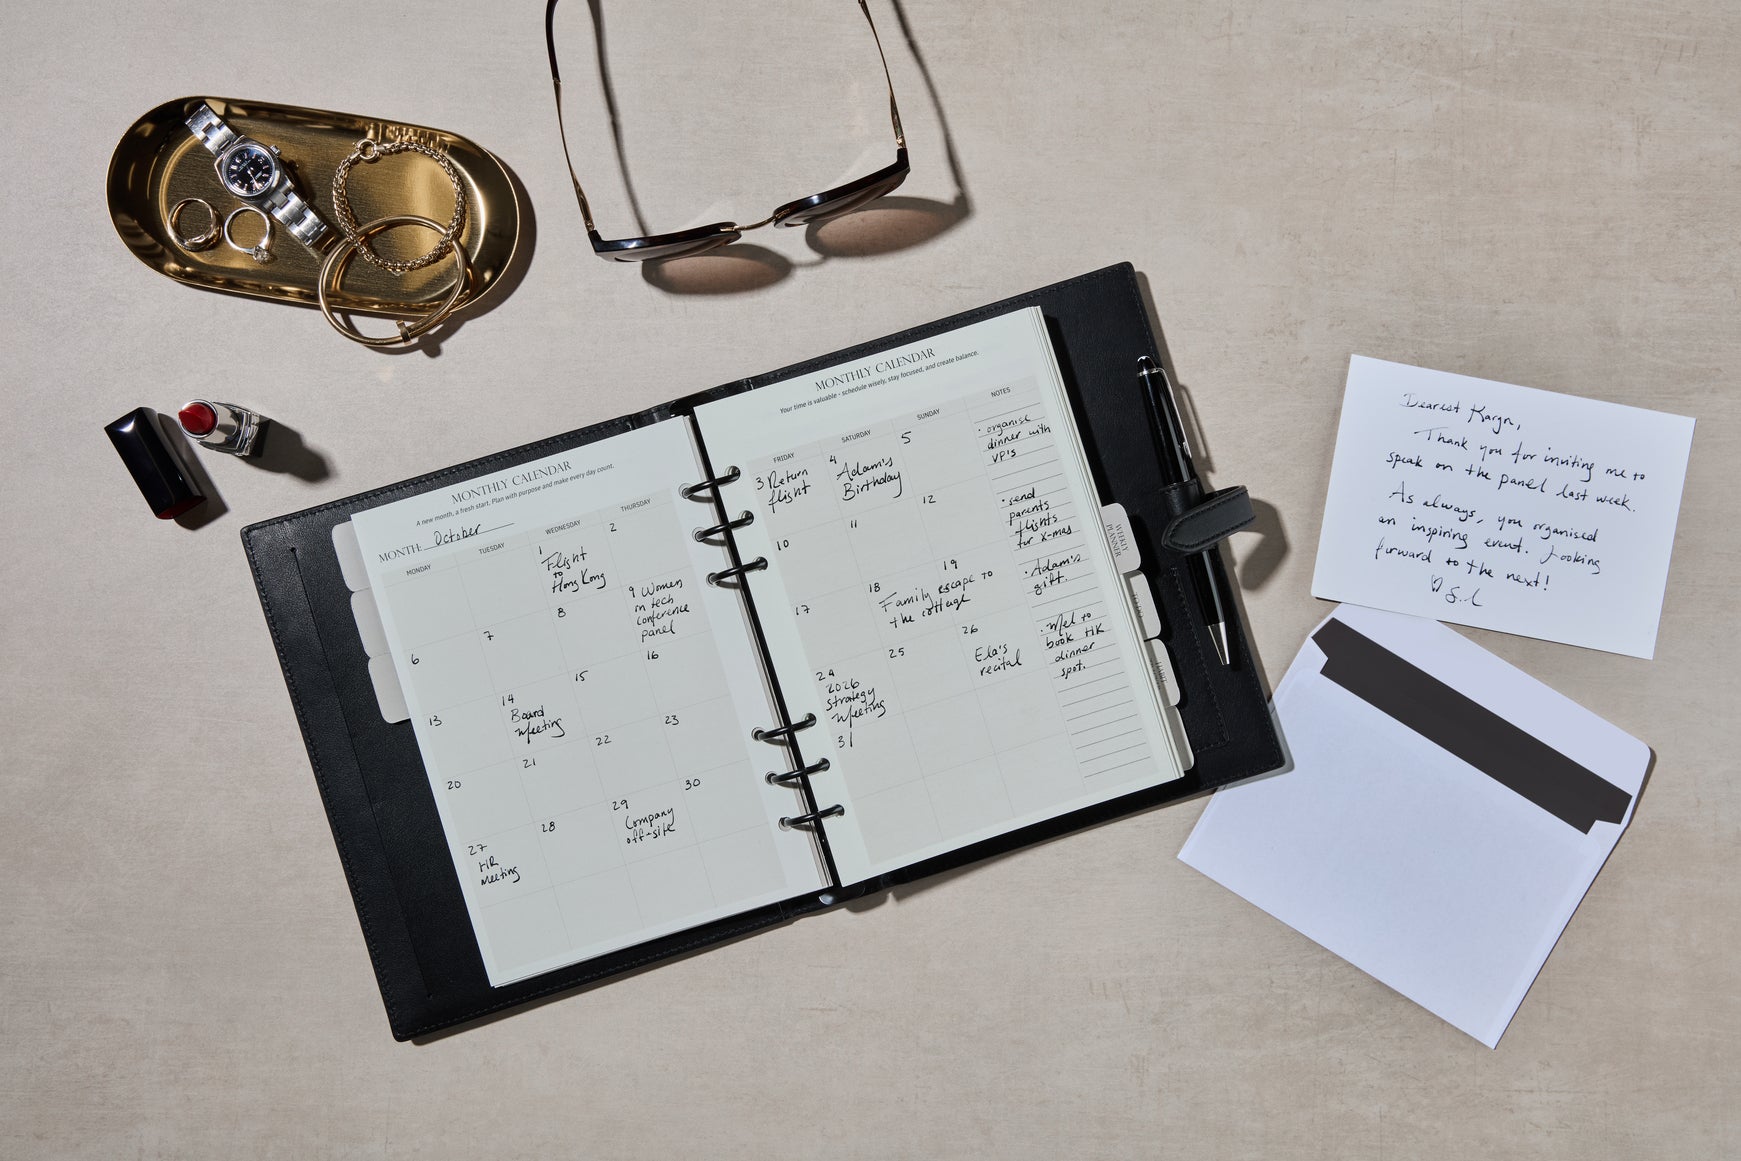 MONTHLY CALENDAR
A new month, a fresh start. Plan with purpose and make every day count.
MONTH: October
MONDAY
TUESDAY
WEDNESDAY
THURSDAY
1
Flight
to
Hong Kong
2
6
7
8
9 Women
in tech
conference
panel
13
14
Board
Meeting
15
16
20
21
22
23
27
HR
Meeting
28
29
Company
off-site
30
MONTHLY CALENDAR
Your time is valuable - schedule wisely, stay focused, and create balance.
FRIDAY
SATURDAY
SUNDAY
NOTES
3 Return
flight
4
Adam's
Birthday
5
10
11
12
17
18
19
Family escape to
the cottage
24
2026
Strategy
Meeting
25
26
Ela's
recital
31
• organise
dinner with
VP's
• send
parents
flights
for X-mas
• Adam's
gift.
• Mel to
book HK
dinner
spot.
WEEKLY
PLANNER
Dearest Karyn,
Thank you for inviting me to
speak on the panel last week.
As always, you organised
an inspiring event. Looking
forward to the next!